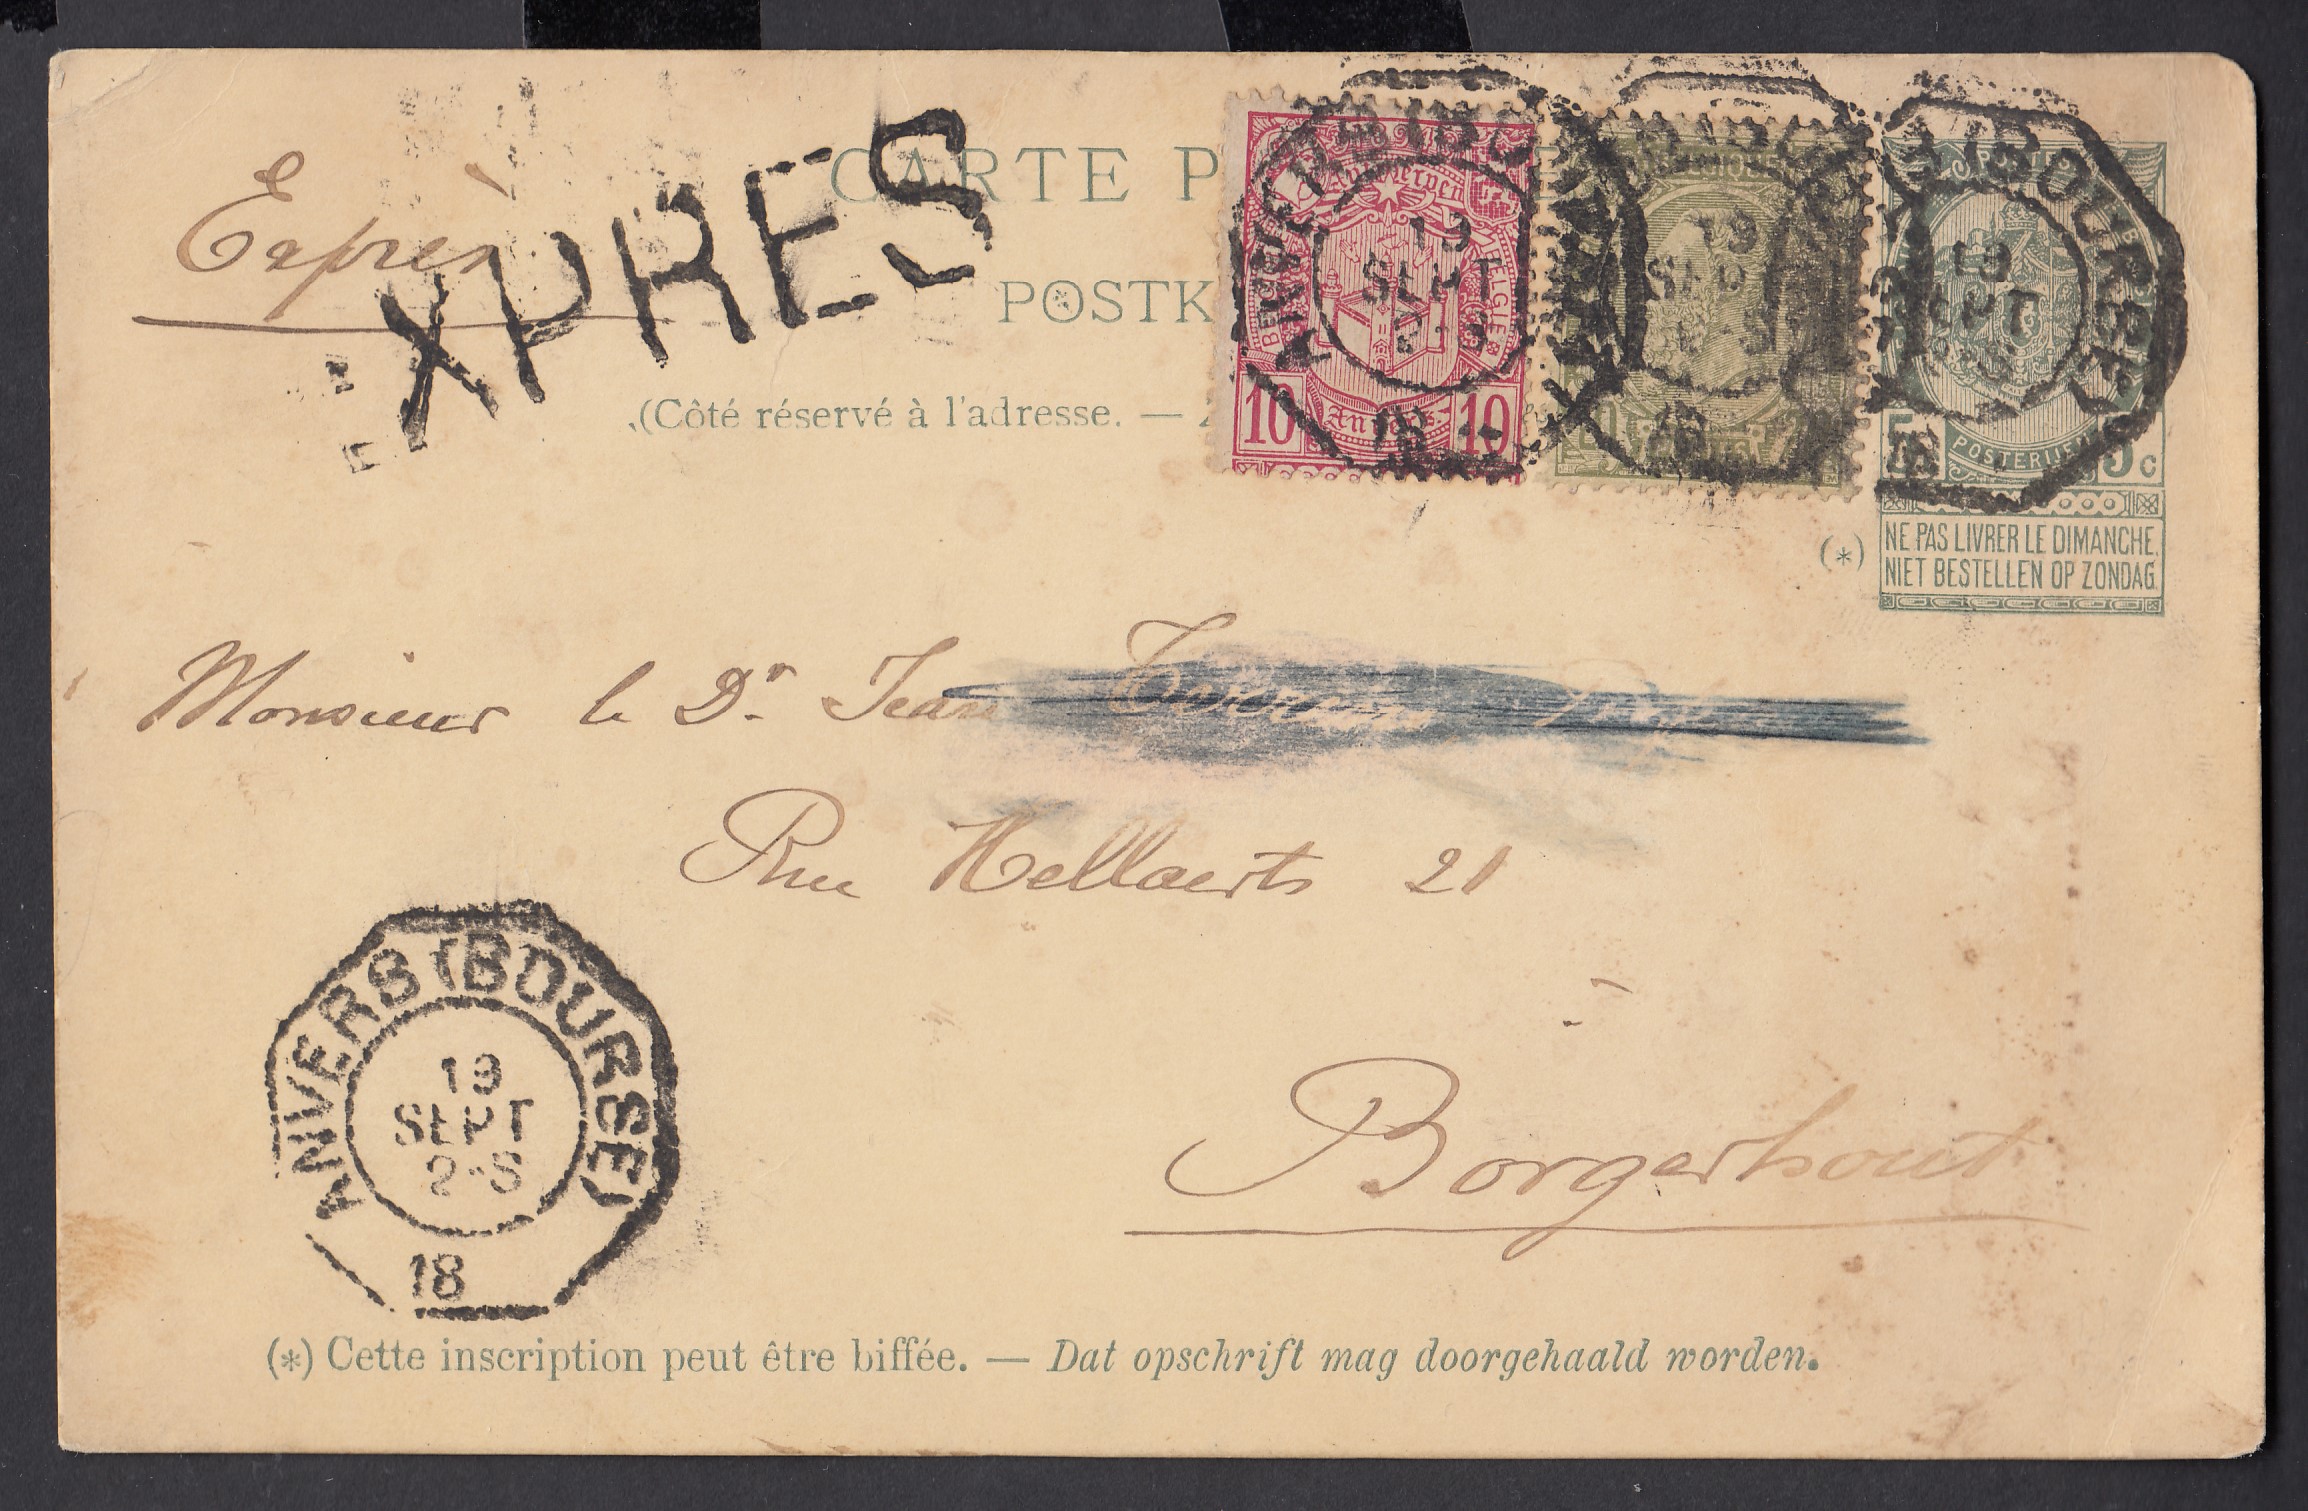 Exprès
EXPRÈS
CARTE P
POSTK
(Côté réservé à l'adresse. —
Antwerpen
BELGIE
10 Anvers 10
ANVERS (BOURSE)
19
SEPT
2-S
18
POSTERIJEN
5 5c
(*) NE PAS LIVRER LE DIMANCHE.
NIET BESTELLEN OP ZONDAG.
Monsieur le Dr. Jean
Rue Hellaerts 21
Borgerhout
ANVERS (BOURSE)
19
SEPT
2-S
18
(*) Cette inscription peut être biffée. — Dat opschrift mag doorgehaald worden.